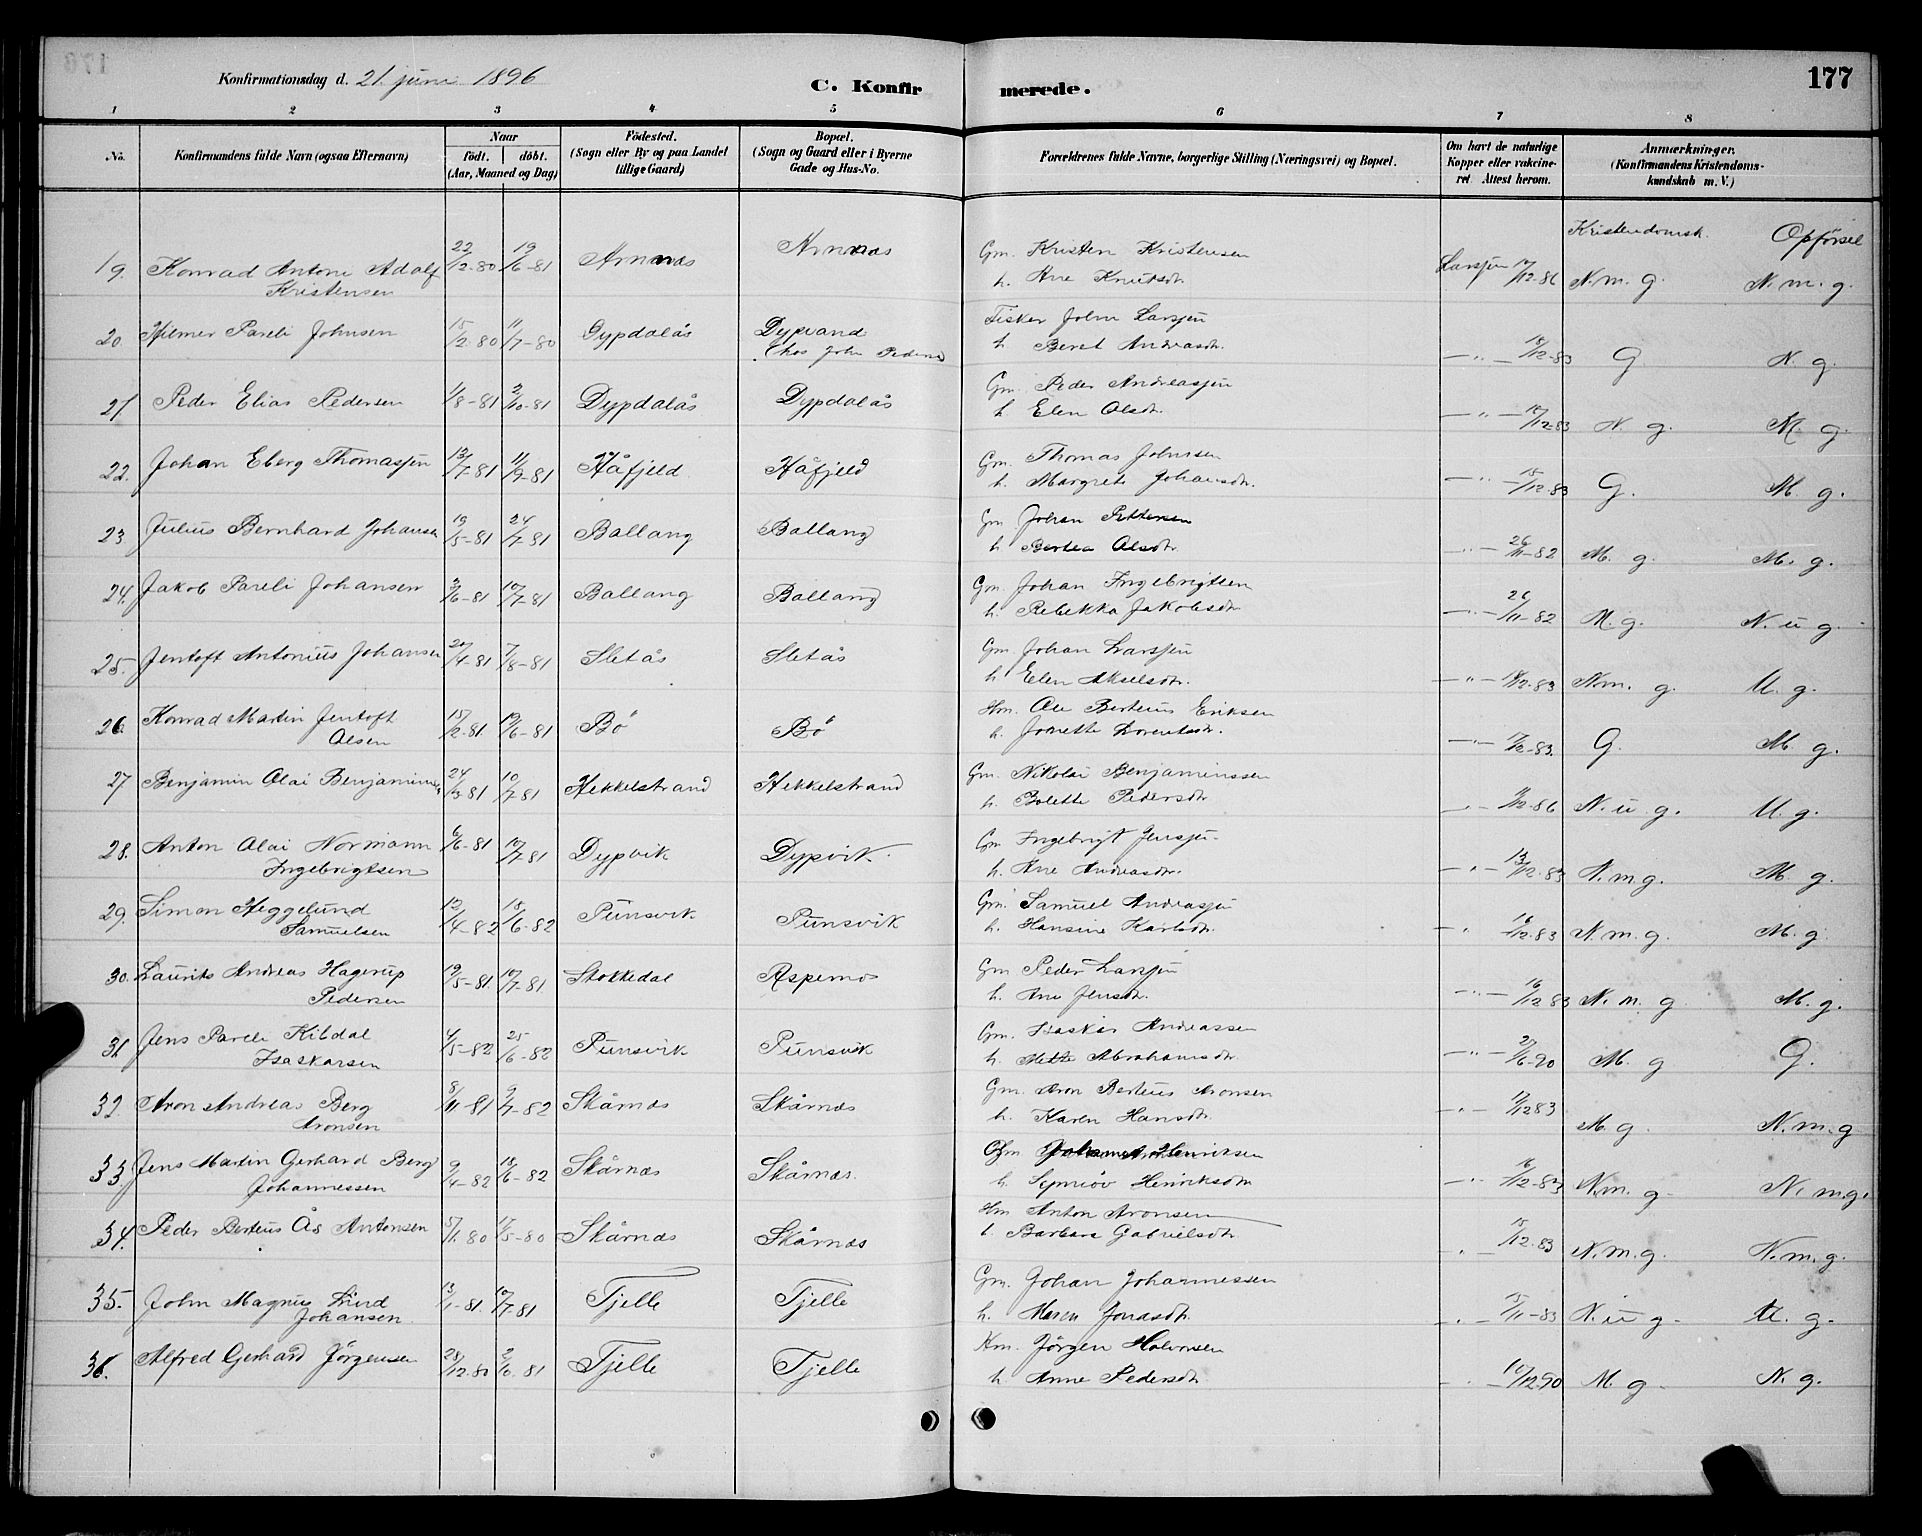 Konfirmationsdag d. 21. juni 1896
C. Konfir merede. 177
1 2 3 4 5 6 7 8
No.
Konfirmandens fulde Navn (ogsaa Efternavn)
Naar
födt. döbt.
(Aar, Maaned og Dag)
Födested.
(Sogn eller By og paa Landet
tillige Gaard)
Bopæl.
(Sogn og Gaard eller i Byerne
Gade og Hus-No.
Forældrenes fulde Navne, borgerlige Stilling (Næringsvei) og Bopæl.
Om havt de naturlige
Kopper eller vakcine-
ret. Attest herom.
Anmærkninger.
(Konfirmandens Kristendoms-
kundskab m. V.)
Kristendomsk. Opförsel
19. Konrad Antoni Adolf 22/12-80 19/6-81 Arnnæs Arnnæs Gm. Kristen Kristensen
Kristensen h. Ane Knutsdtr. Larsjen 17/12-86 N. m. g. N. m. g.
20. Hilmer Pareli Johnsen 15/2-80 11/7-80 Dypdalås Dypvand Fisker John Larsjen
(hos John Peders h. Beret Andreasdtr. — " — 18/12-83 G. N. g.
21 Peder Elias Pedersen 1/8-81 2/10-81 Dypdalås Dypdalås Gm. Peder Andreasjen
h. Elen Olsdtr. — " — 18/12-83 N. g. M. g.
22. Johan Eberg Thomasjen 13/7-81 11/9-81 Håfjeld Håfjeld Gm. Thomas Johnsen
h. Margrete Johansdtr. — " — 15/12-83 G. M. g.
23 Julius Bernhard Johansen 19/5-81 24/7-81 Ballang Ballang Gm Johan Pettersen
h. Bertea Olsdtr. — " — 26/11-82 M. g. M. g.
24. Jakob Pareli Johansen 3/6-81 10/7-81 Ballang Ballang Gm. Johan Ingebrigtsen
h. Rebekka Jakobsdtr — " — 26/11-82 M. g. N. u g.
25. Jentoft Antonius Johansen 20/4-81 7/8-81 Sletås Sletås Gm. Johan Larsjen
h. Elen Akselsdtr. — " — 18/12-83 N. m. g. U. g.
26. Konrad Martin Jentoft 15/2-81 19/6-81 Bö Bö Hm. Ole Berteus Eriksen
Olsen h. Jonette Lorentsdtr. — " — 17/12-83. G. M. g.
27 Benjamin Olai Benjaminsen 24/3-81 10/7-81 Hekkelstrand Hekkelstrand Gm. Nikolai Benjaminssen
h. Bolette Pedersdtr — " — 9/12-86 N. u g. U. g.
28. Anton Olai Normann 6/6-81 10/7-81 Dypvik Dypvik Gm Ingebrigt Jensjen
Ingebrigtsen h. Ane Andreasdtr. — " — 13/12-83 N. m g. M. g.
29. Simon Heggelund 12/4-82 18/6-82 Punsvik Punsvik Gm. Samuel Andreasjen
Samuelsen h. Hansine Karlsdtr. — " 16/12-83 N. m. g. M. g.
30. Laurits Andreas Hagerup 19/5-81. 10/7-81. Stokkedal Aspenes Gm Peder Larsjen
Pedersen h. Ane Jensdtr. — " — 16/12 83 N. m. g M. g.
31. Jens Pareli Kildal 4/5-82 25/6-82 Punsvik Punsvik Gm. Isaskar Andreassen
Isaskarsen h. Mette Abrahamsdtr. — " — 27/6-90 M. g G.
32. Aron Andreas Berg 8/11-81 9/7-82 Skårnæs Skårnæs Gm. Aron Berteus Aronsen
Aronsen h. Karen Hansdtr. — " — 17/12 83 M. g. N. m. g
33. Jens Martin Gerhard Berg 9/4-82 18/6-82 Skårnæs Skårnæs. Gm Johannes Henriksen
Johannessen h. Henriksdtr — " 16/12-83 N. m. g. N. m. g.
34. Peder Berteus Ås Antonsen 5/1.80 17/5-80 Skårnæs Skårnæs Hm Anton Aronsen
h. Barbara Gabrielsdtr " — 15/12-83 N. m. g. N. m. g.
35. John Magnus Lind 13/1-81. 10/7-81 Tjelle Tjelle Gm. Johan Johannessen
Johansen. h. Maren Jonasdtr. — " — 15/11-83 N. u g. U. g.
36. Alfred Gerhard Jörgensen 28/12.80 2/10.81 Tjelle Tjelle Km. Jörgen Halvorsen
h. Anne Pedersdtr " — 10/12-90 M. g. N. g.